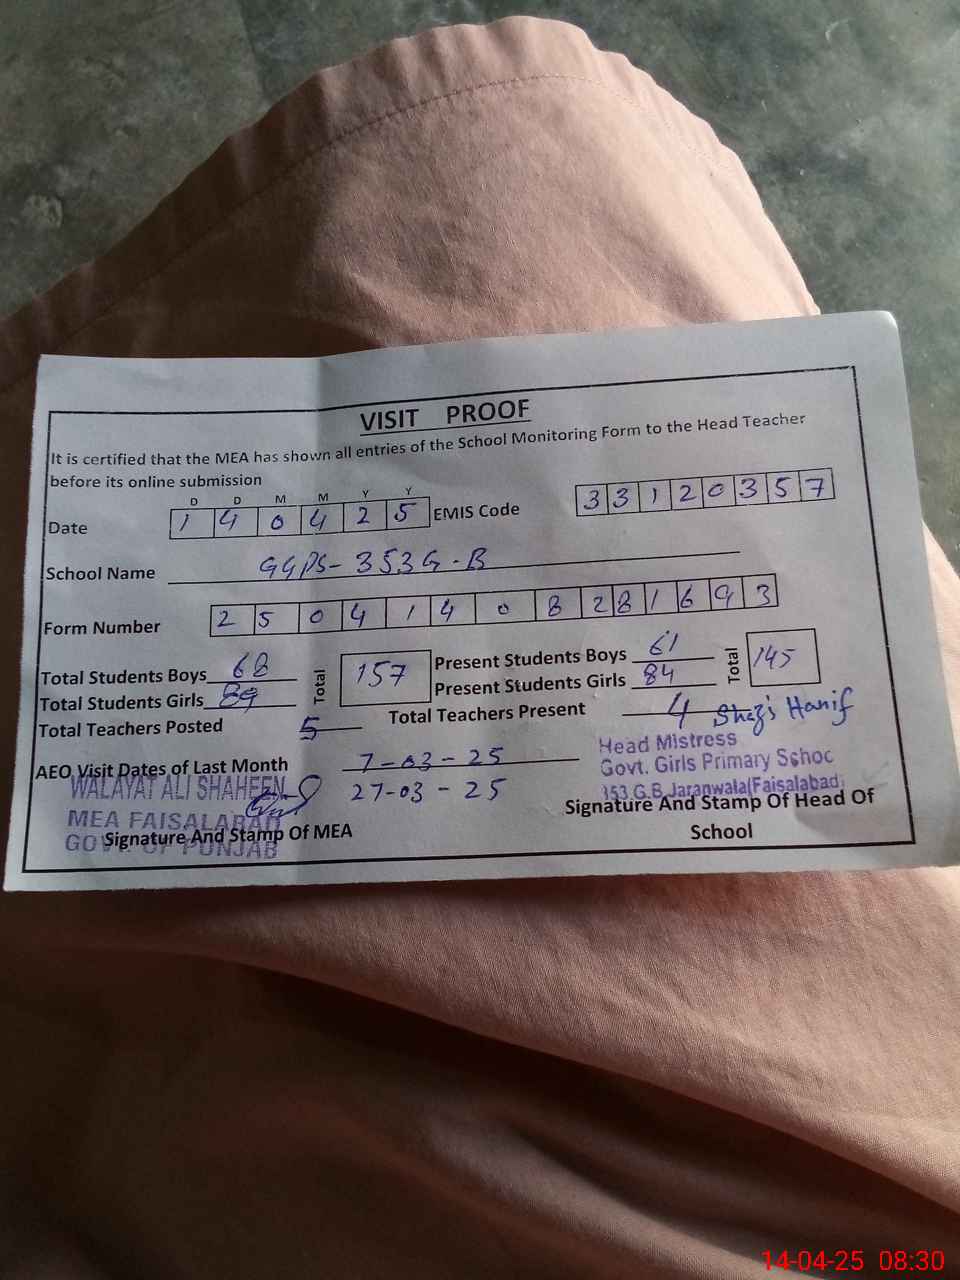 VISIT PROOF
It is certified that the MEA has shown all entries of the School Monitoring Form to the Head Teacher
before its online submission
D D M M Y Y
Date 1 4 0 4 2 5 EMIS Code 3 3 1 2 0 3 5 7
School Name GGPS- 353G-B
Form Number 2 5 0 4 1 4 0 8 2 8 1 6 9 3
Total Students Boys 68 Total 157 Present Students Boys 61 Total 145
Total Students Girls 89 Present Students Girls 84
Total Teachers Posted 5 Total Teachers Present 4 Hanif
AEO Visit Dates of Last Month 7-03-25
27-03-25
Head Mistress
Govt. Girls Primary Schoo
353 G.B Jaranwala(Faisalabad)
Signature And Stamp Of Head Of
School
WALAYAT ALI SHAHEEN
MEA FAISALABAD
GOVT. OF PUNJAB
Signature And Stamp Of MEA
14-04-25 08:30